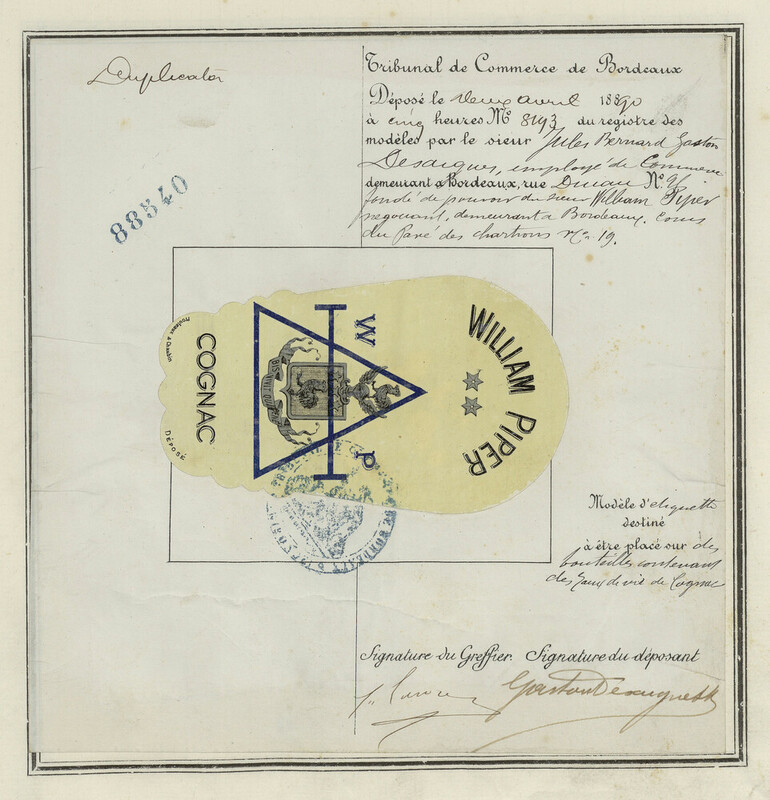 Duplicata
88540
Tribunal de Commerce de Bordeaux
Déposé le deux avril 1890
à cinq heures Nº 8193 du registre des
modèles par le sieur Jules Bernard Gaston
Desaigues, employé de Commerce
demeurant à Bordeaux, rue Nº
fondé de pouvoir du sieur William Piper
négociant, demeurant à Bordeaux. Cours
du Pavé des chartrons Nº 19.
WILLIAM PIPER
W P
COGNAC
DÉPOSÉ
Modèle d'etiquette
destiné
à être placé sur des
bouteilles contenant
des Eaux de vie de Cognac
Signature du Greffier. Signature du déposant